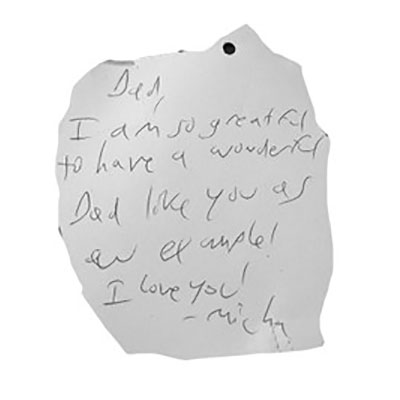 Dad,
I am so greatful
to have a wonderful
Dad like you as
an example!
I love you!
- Micha